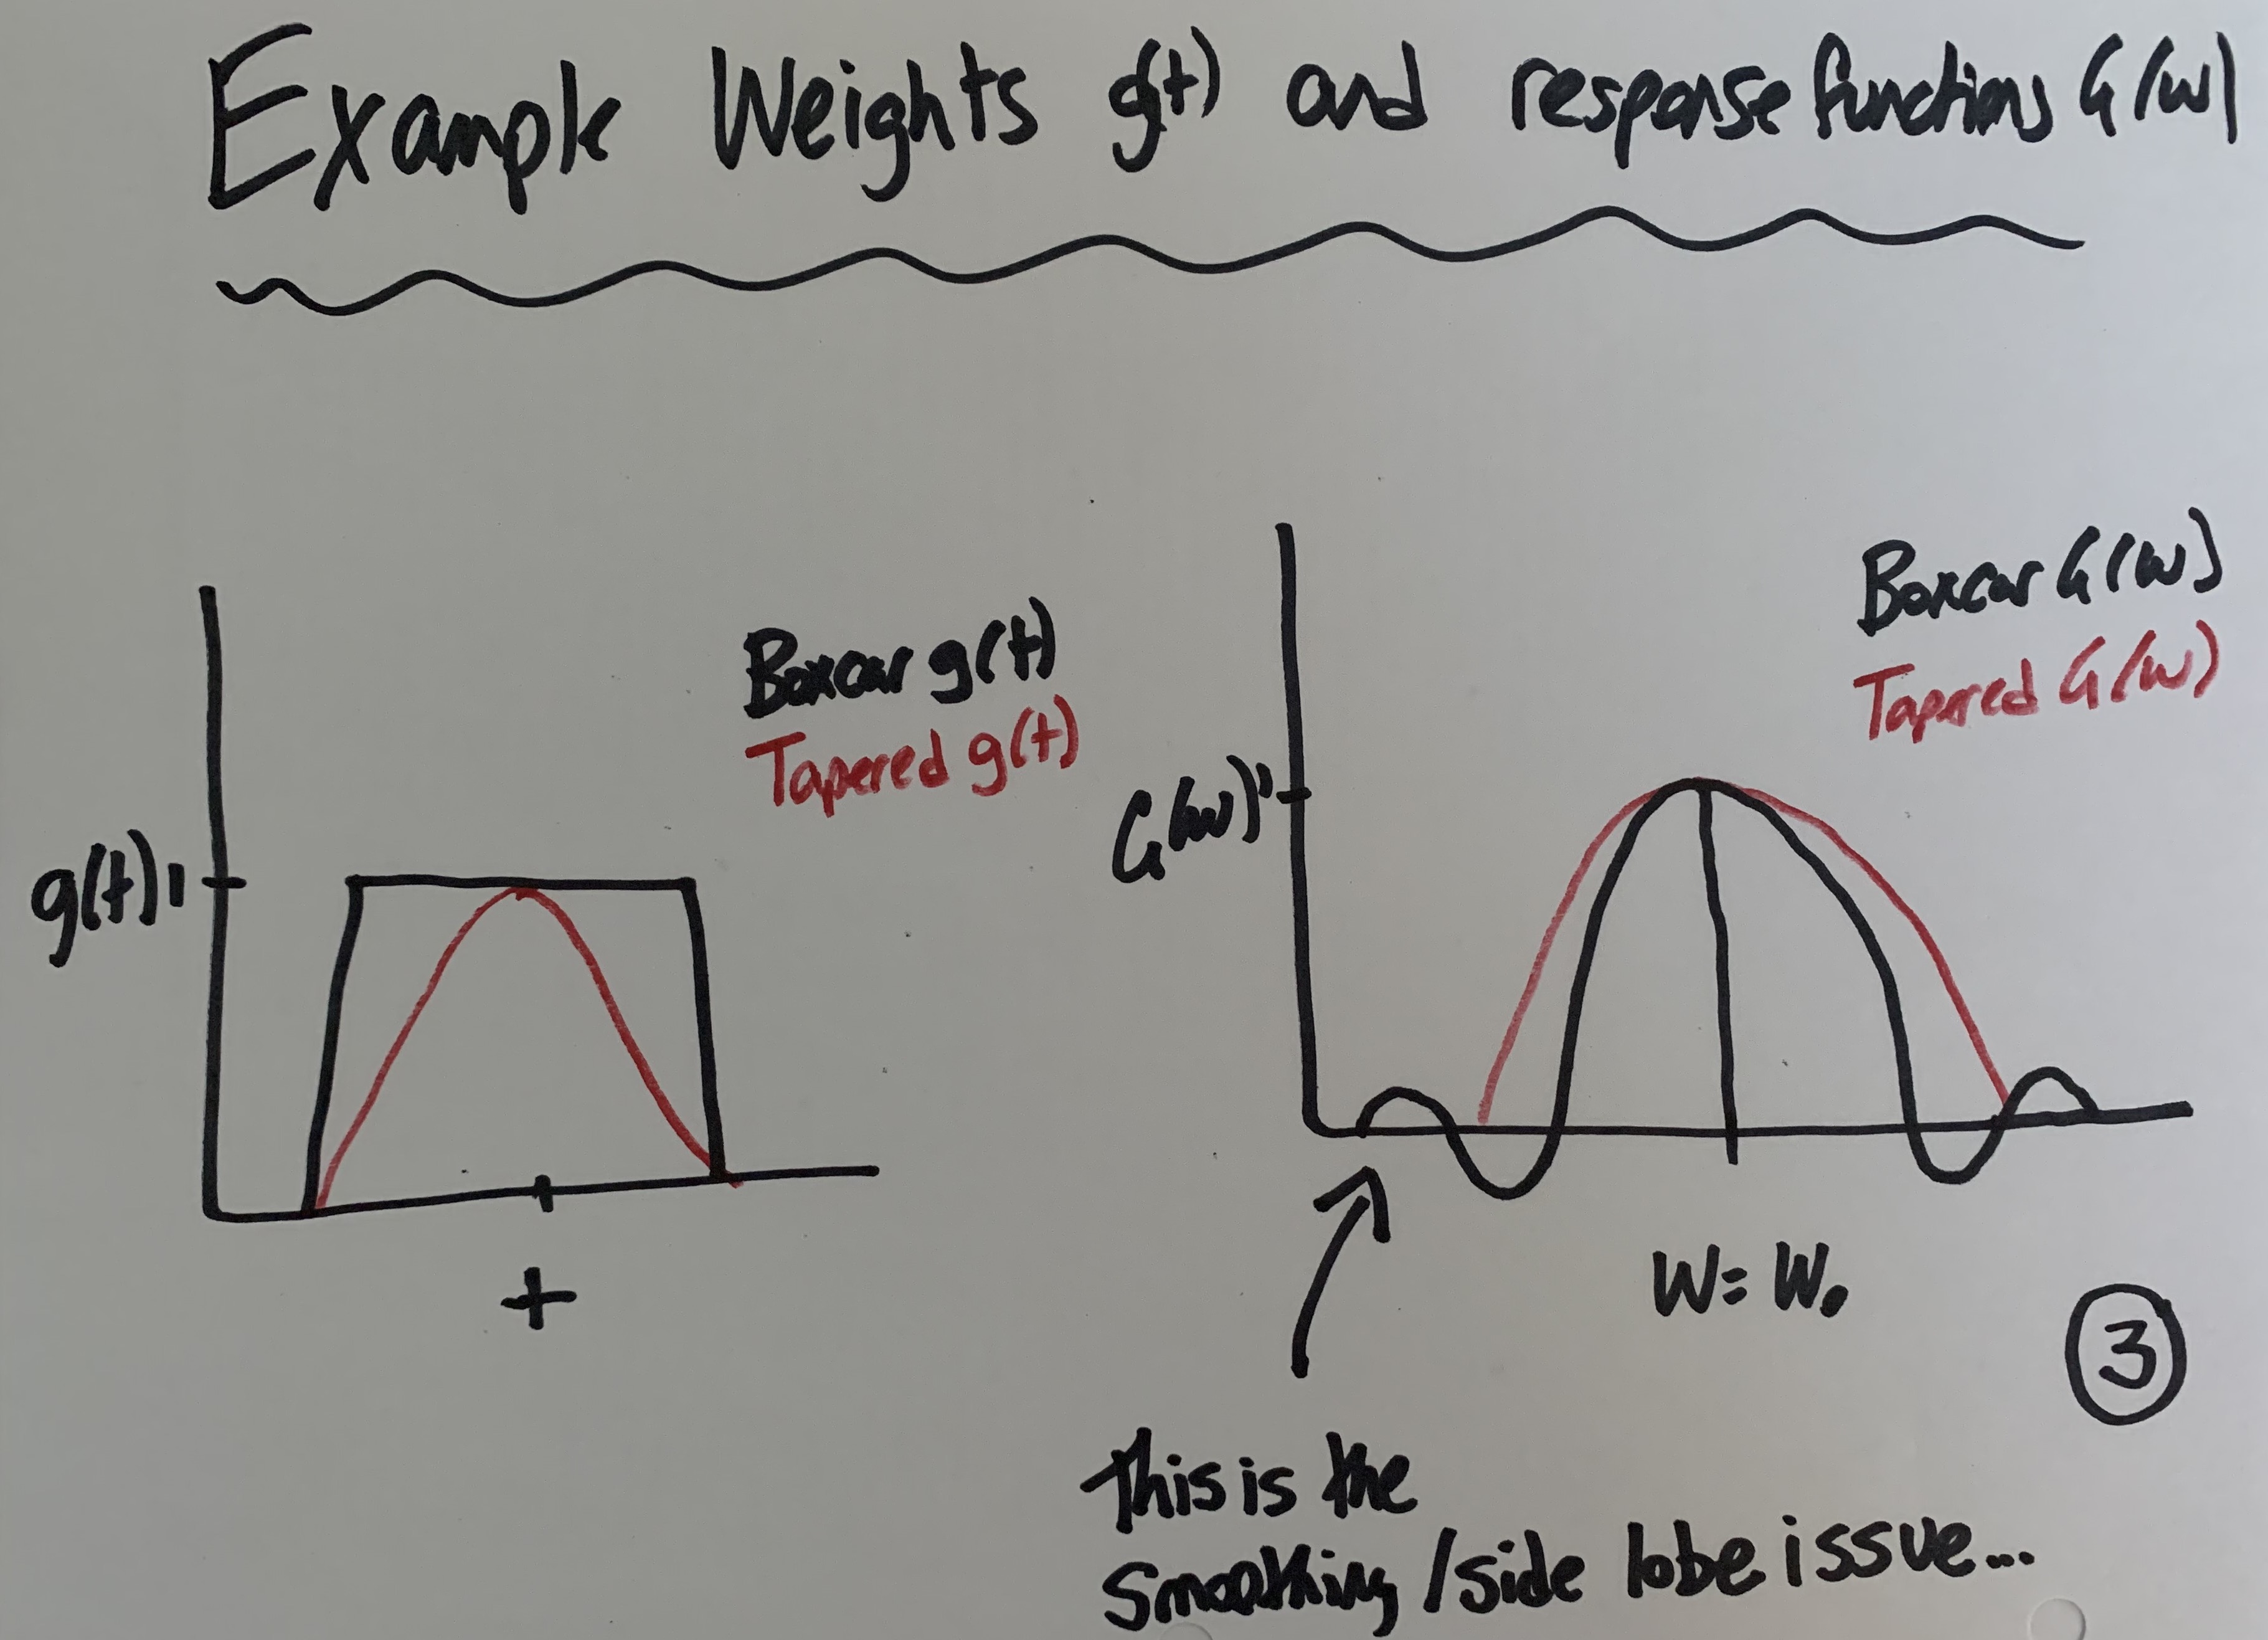 Example Weights g(t) and response functions G(w)
Boxcar g(t)
Tapered g(t)
g(t) 1
t
Boxcar G(w)
Tapered G(w)
G(w) 1
W = W.
3
This is the
Smoothing / side lobe issue...